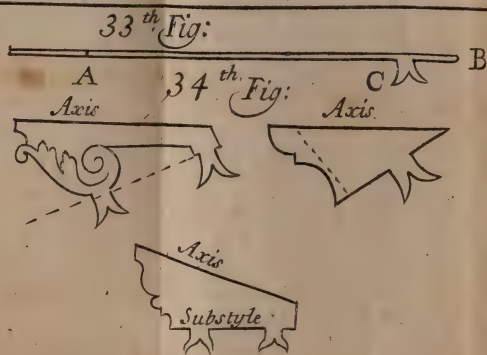 33th Fig:
A C B
34th Fig:
Axis Axis.
Axis
Substyle